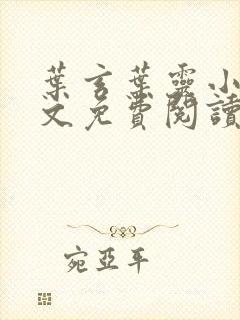 葉言葉靈小
文免費閱讀
宛亞平